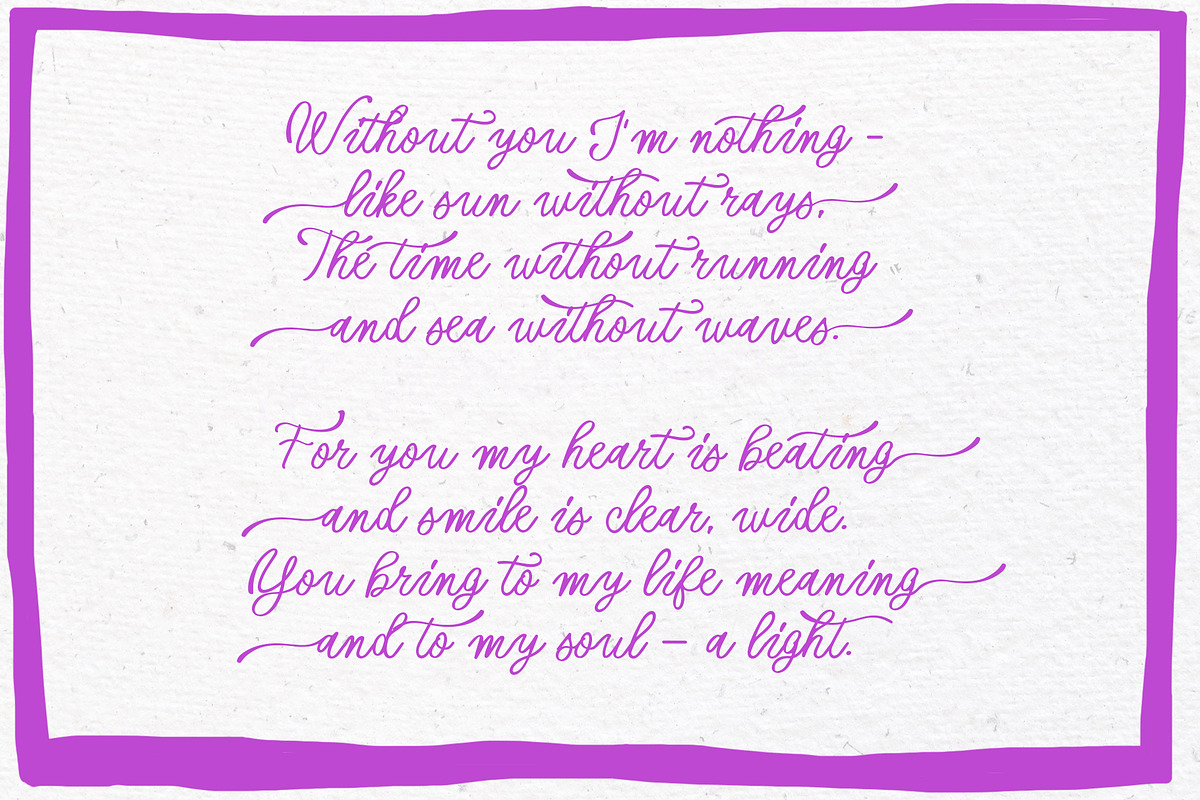 Without you I'm nothing -
like sun without rays,
The time without running
and sea without waves.
For you my heart is beating
and smile is clear, wide.
You bring to my life meaning
and to my soul – a light.